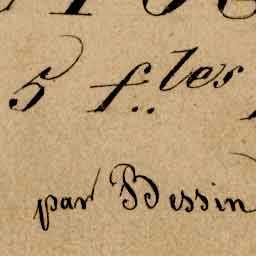 5 f.les
par Bessin